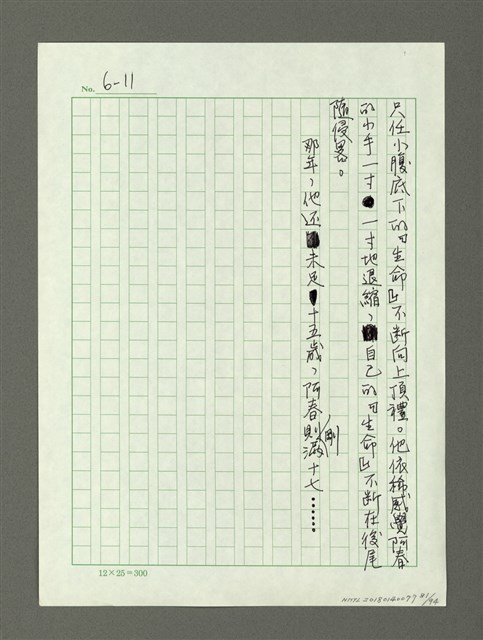 No. 6-11
只任小腹底下的「生命」不斷向上頂禮。他依稀感覺阿春
的小手一寸一寸地退縮，自己的「生命」不斷在後尾
隨侵畧。
那年，他还未足十五歲，阿春則剛滿十七……
12×25=300
NMTL 20180140097 #1/94